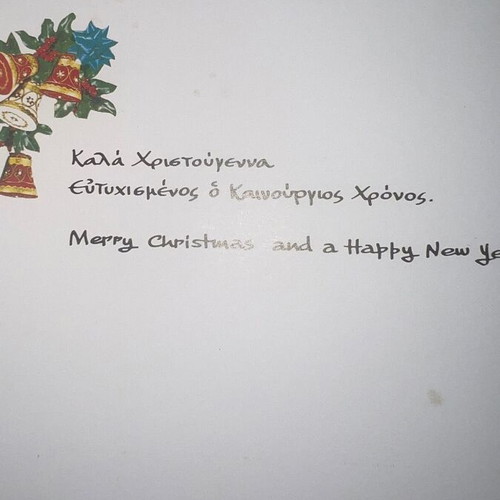 Καλά Χριστούγεννα
Εὐτυχισμένος ὁ Καινούργιος Χρόνος.
Merry Christmas and a Happy New Ye